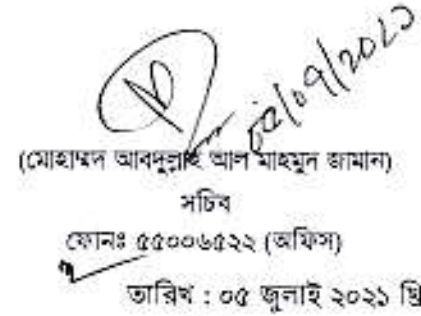 ০৫/০৭/২০২১
(মোহাম্মদ আবদুল্লাহ আল মাহমুদ জামান)
সচিব
ফোনঃ ৫৫০০৬৫২২ (অফিস)
তারিখ : ০৫ জুলাই ২০২১ খ্রি